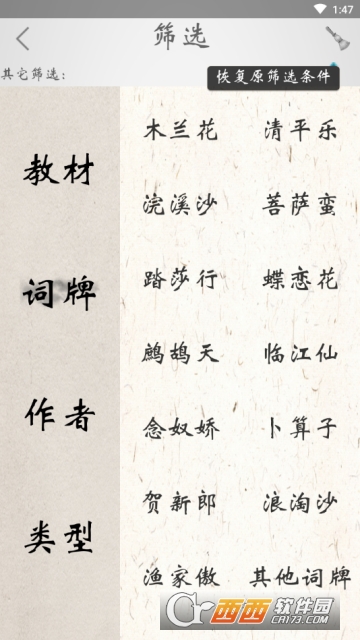 1:47
筛选
其它筛选:
恢复原筛选条件
教材
词牌
作者
类型
木兰花 清平乐
浣溪沙 菩萨蛮
踏莎行 蝶恋花
鹧鸪天 临江仙
念奴娇 卜算子
贺新郎 浪淘沙
渔家傲 其他词牌
西西软件园
CR173.COM